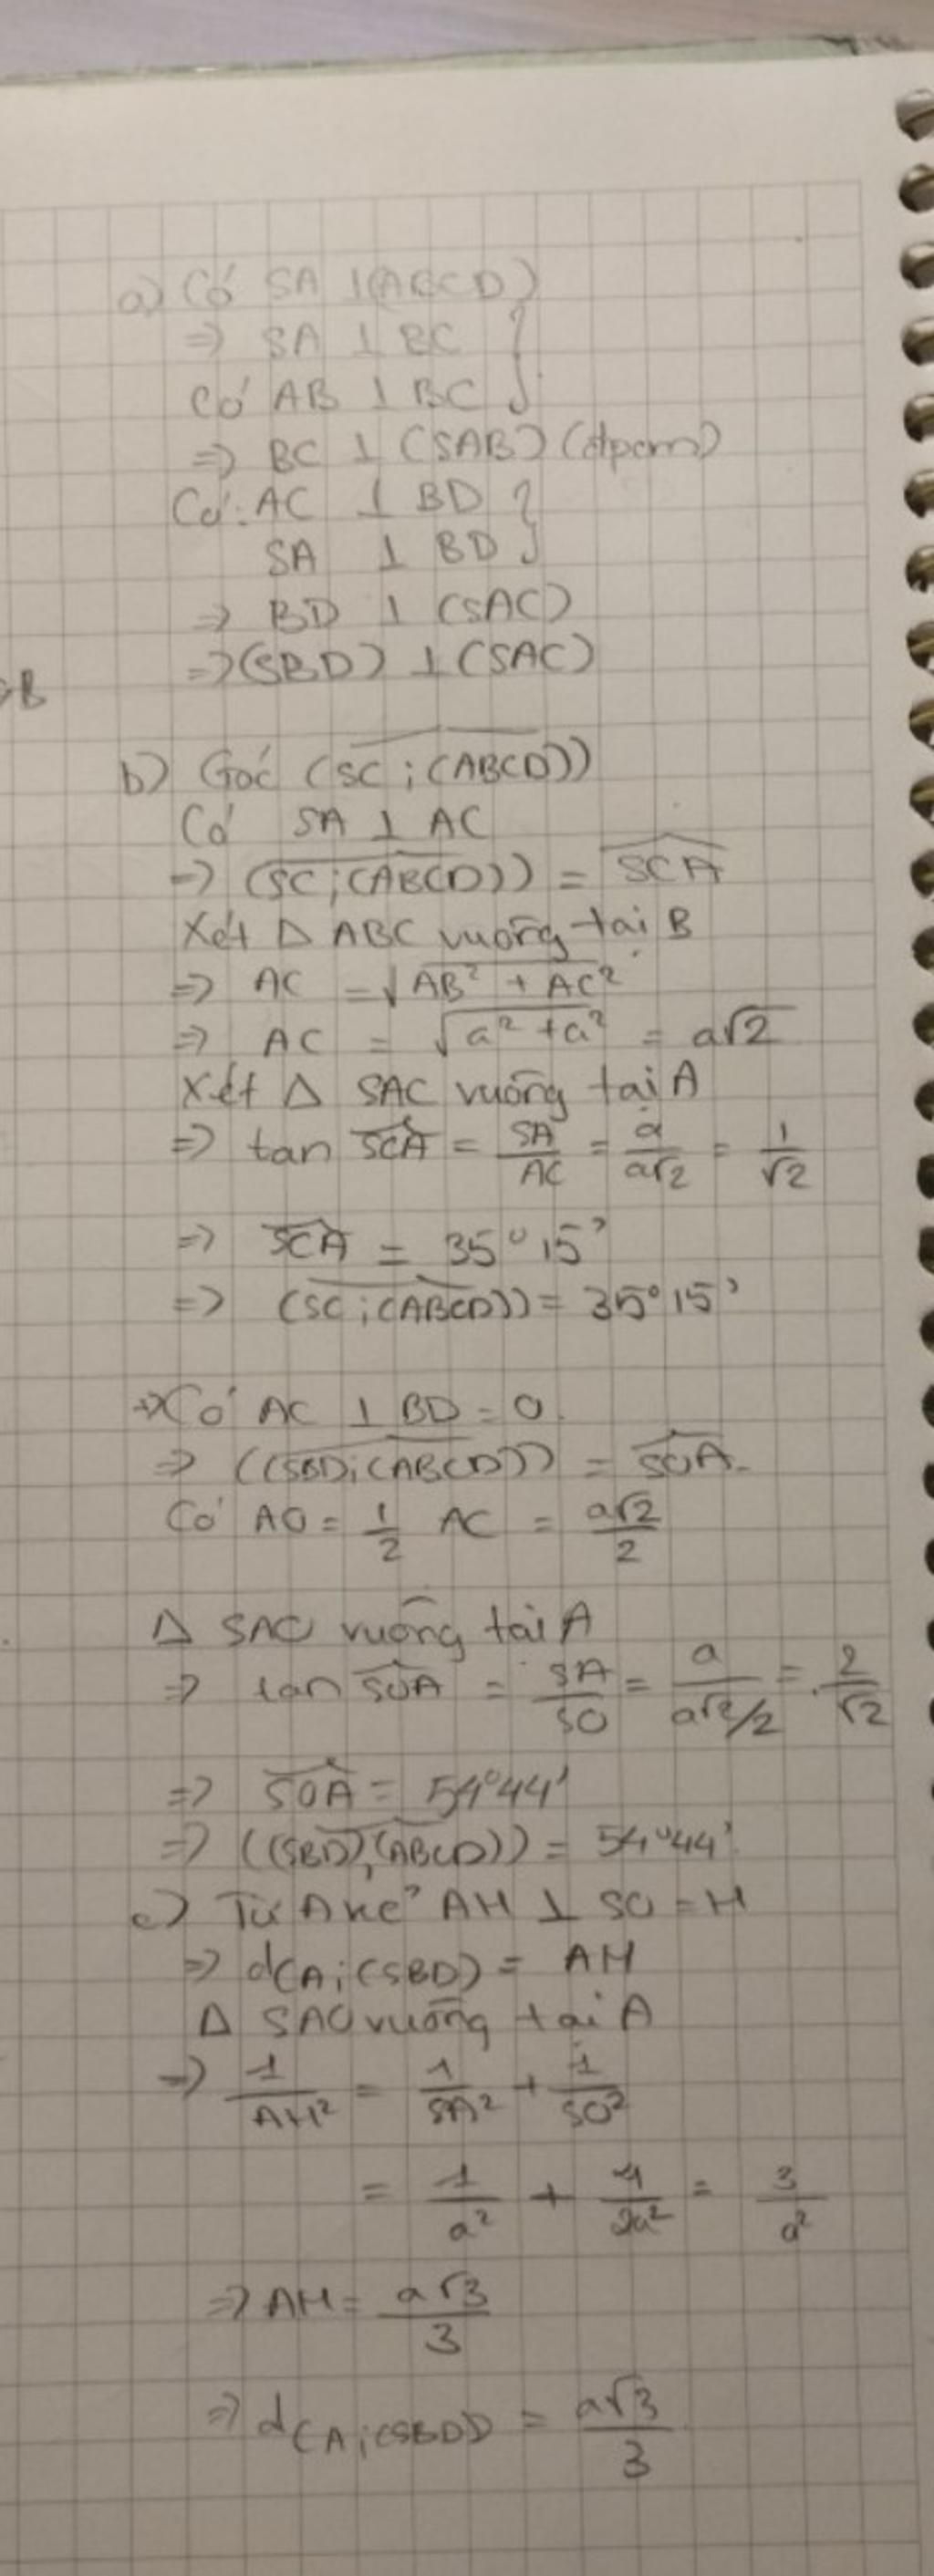 a) Có SA ⊥ (ABCD)
⇒ SA ⊥ BC }
Có AB ⊥ BC
⇒ BC ⊥ (SAB) (đpcm)
Có: AC ⊥ BD }
SA ⊥ BD
⇒ BD ⊥ (SAC)
⇒ (SBD) ⊥ (SAC)
B
b) Góc (SC; (ABCD))
Có SA ⊥ AC
⇒ (SC; (ABCD)) = SCA
Xét Δ ABC vuông tại B
⇒ AC = √(AB² + AC²)
⇒ AC = √(a² + a²) = a√2
Xét Δ SAC vuông tại A
⇒ tan SCA = SA/AC = a/a√2 = 1/√2
⇒ SCA = 35°15'
⇒ (SC; (ABCD)) = 35°15'
Có AC ⊥ BD = O
⇒ ((SBD; (ABCD)) = SOA
Có AO = 1/2 AC = a√2/2
Δ SAO vuông tại A
⇒ tan SOA = SA/SO = a/(a√2/2) = 2/√2
⇒ SOA = 54°44'
⇒ ((SBD), (ABCD)) = 54°44'
c) Từ A kẻ AH ⊥ SO = H
⇒ d(A; (SBD) = AH
Δ SAO vuông tại A
⇒ 1/AH² = 1/SA² + 1/SO²
= 1/a² + 4/2a² = 3/a²
⇒ AH = a√3/3
⇒ d(A; (SBD)) = a√3/3